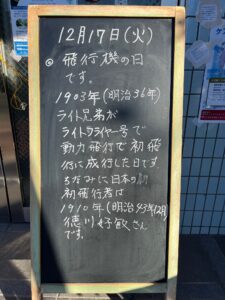 12月17日(火)
◎ 飛行機の日
です。
1903年(明治36年)
ライト兄弟が
ライトフライヤー号で
動力飛行で初飛
行に成行した日です
ちなみに日本の初
初飛行者は
1910年(明治43年12月)
徳川好敏さん
です。